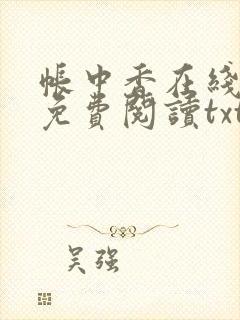 帳中香在綫
免費閱讀txt
吴强